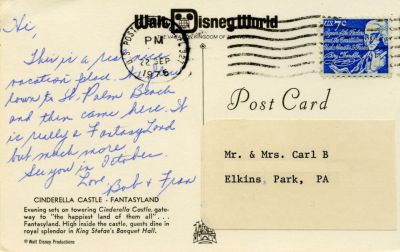 Walt Disney World
Hi,
This is a real nice
vacation place. We flew
down to St. Palm Beach
and then came here. It
is really a FantasyLand
but much more.
See you in October.
Love,
Bob & Fran
CINDERELLA CASTLE - FANTASYLAND
Evening sets on towering Cinderella Castle, gate-
way to "the happiest land of them all" . . .
Fantasyland. High inside the castle, guests dine in
royal splendor in King Stefan's Banquet Hall.
© Walt Disney Productions
PM
22 SEP
1976
US 7c
Post Card
Mr. & Mrs. Carl B
Elkins Park, PA